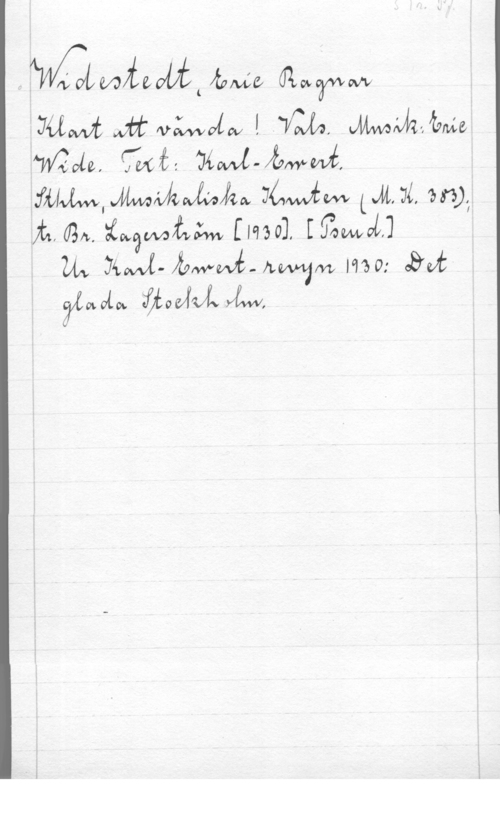 Widestedt, Eric Ragnar
Klart att vända! Vals. Musik: Eric
Wide. Text: Karl-Ewert.
Sthlm, Musikaliska Knuten (M.K. 383);
tr. Br. Lagerström [1930]. [Pseud.]
Ur Karl-Ewert-revyn 1930: Det
glada Stockholm.